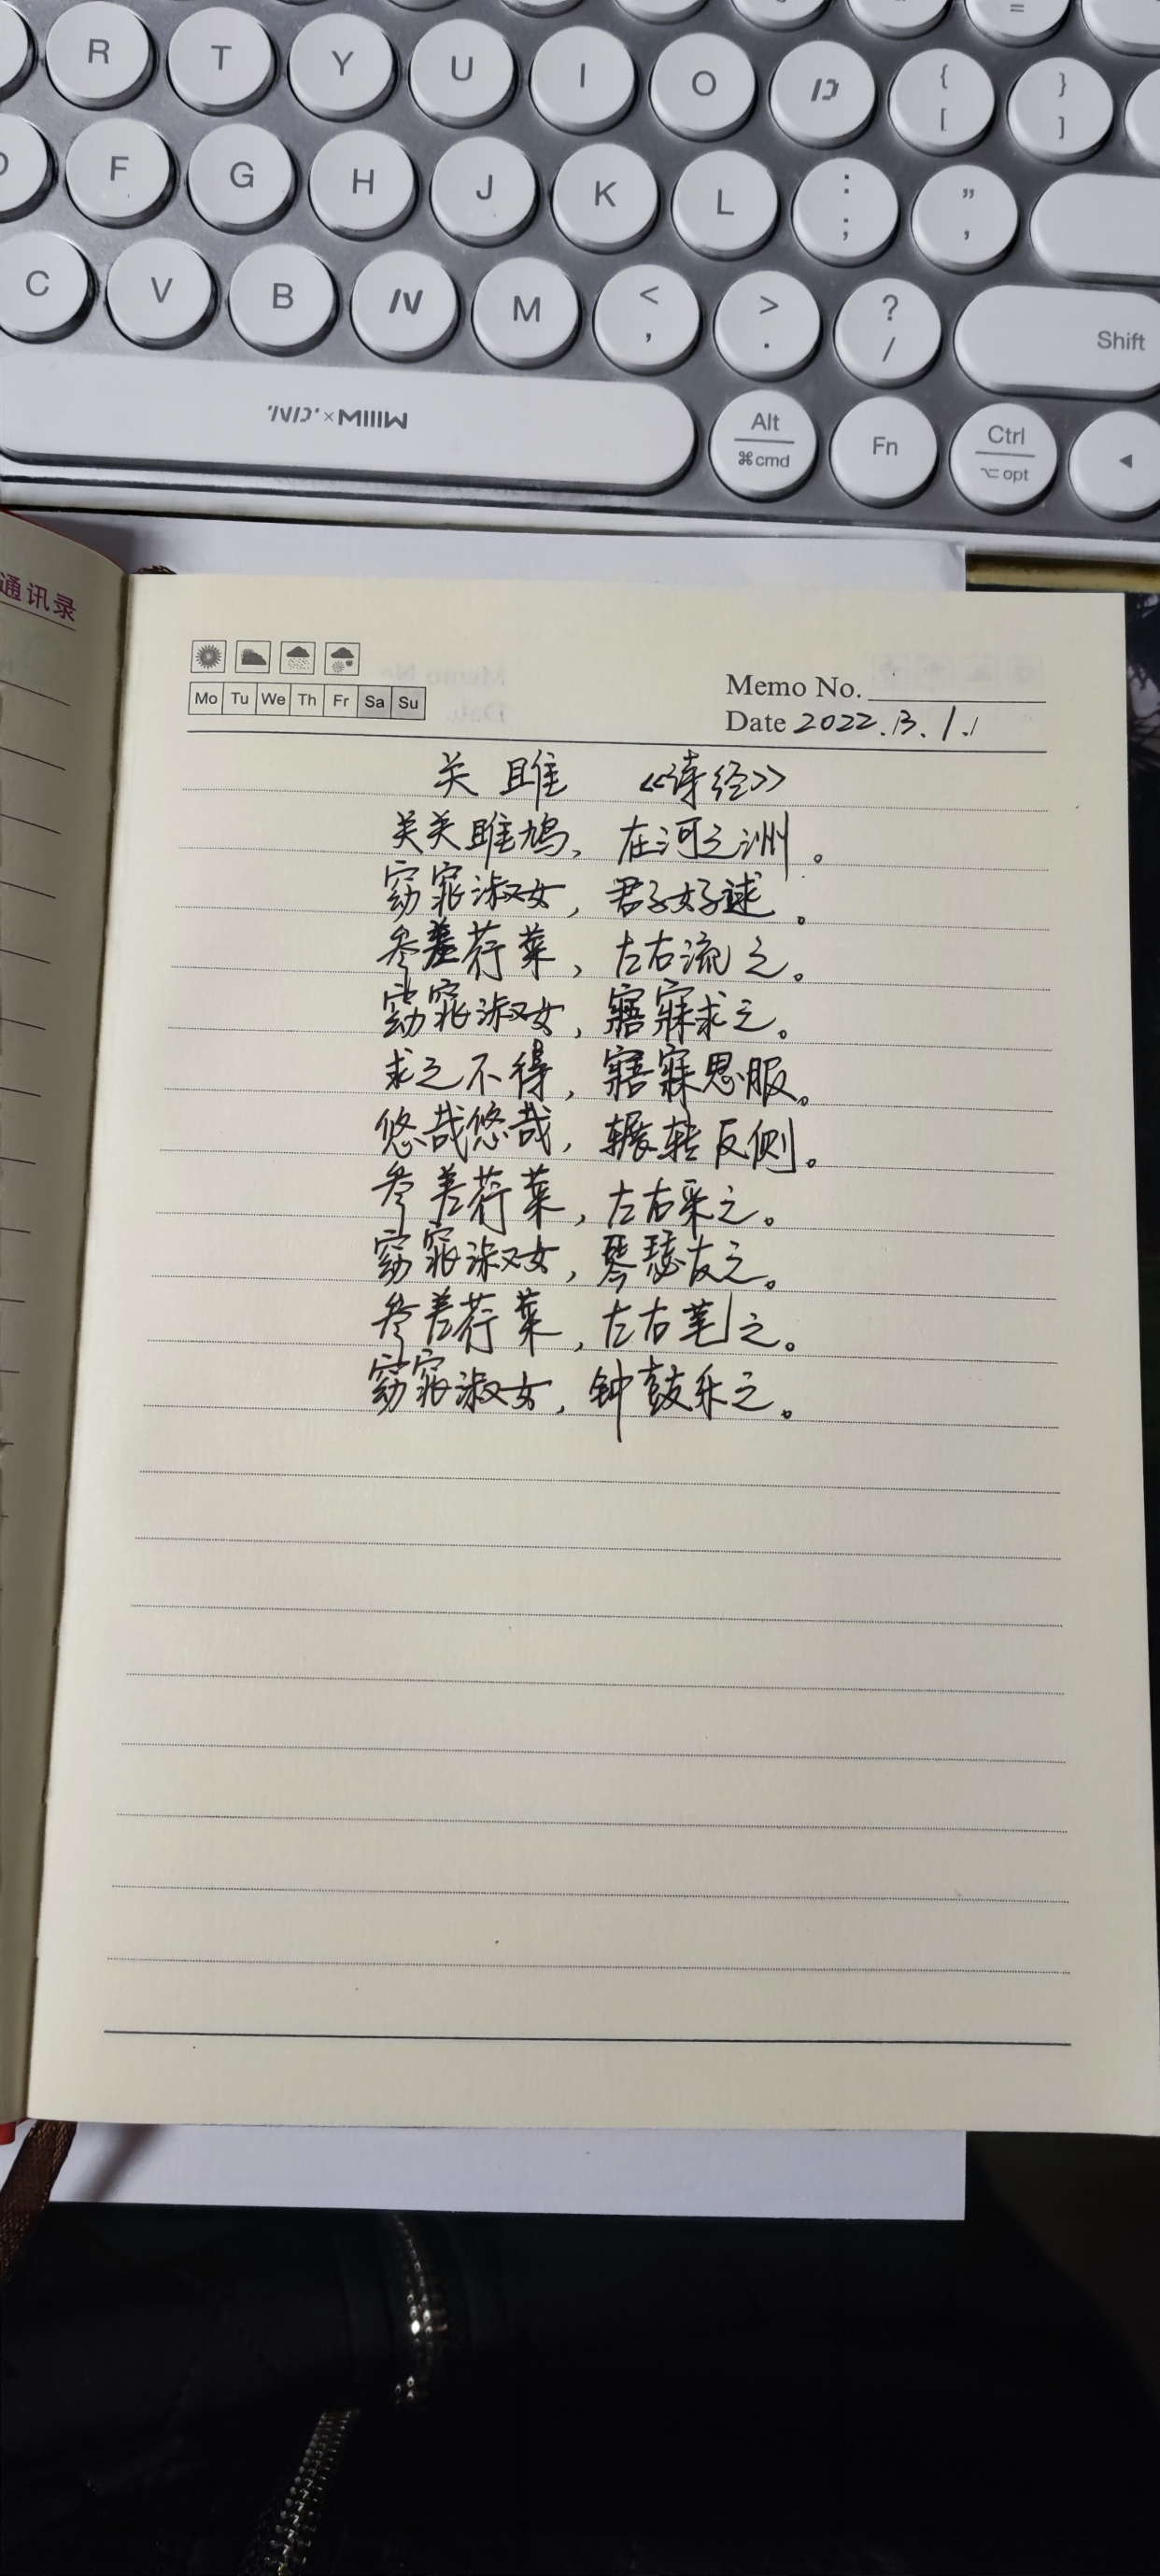 R T Y U I O P { [ } ]
D F G H J K L : ; " ,
C V B N M < , > . ? / Shift
MIIIW Alt ⌘cmd Fn Ctrl ⌥opt ◄
通讯录
Mo Tu We Th Fr Sa Su
Memo No.
Date 2022.3.1.
关雎 《诗经》
关关雎鸠，在河之洲。
窈窕淑女，君子好逑。
参差荇菜，左右流之。
窈窕淑女，寤寐求之。
求之不得，寤寐思服。
悠哉悠哉，辗转反侧。
参差荇菜，左右采之。
窈窕淑女，琴瑟友之。
参差荇菜，左右芼之。
窈窕淑女，钟鼓乐之。